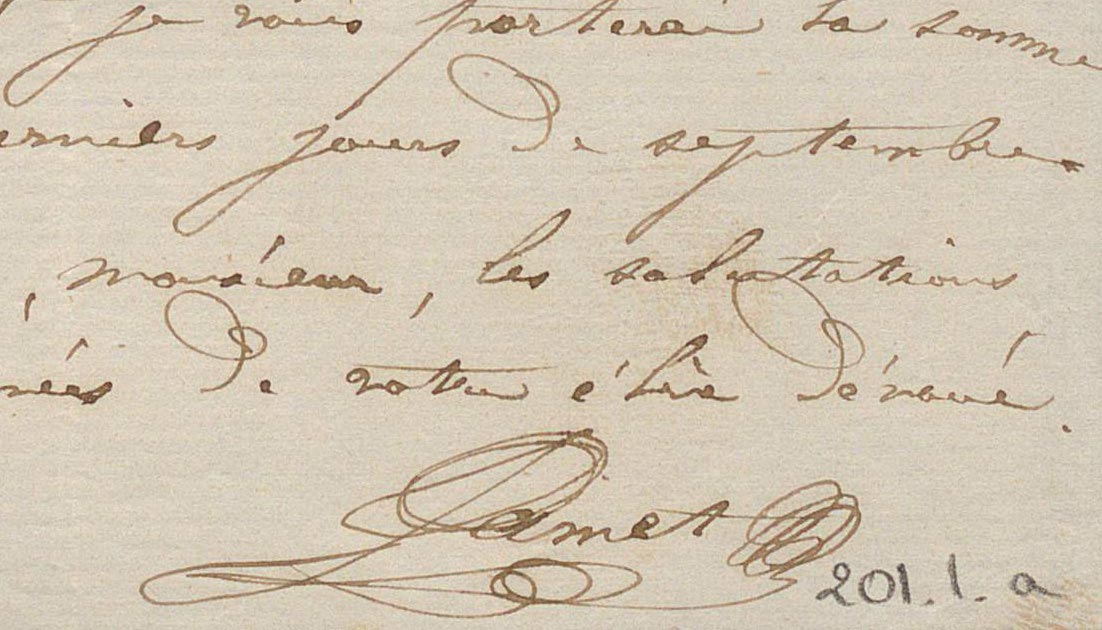 je vous porterai la somme
erniers jours de septembre.
, monsieur, les salutations
nées de votre élève dévoué.
Jamet
201.1.a